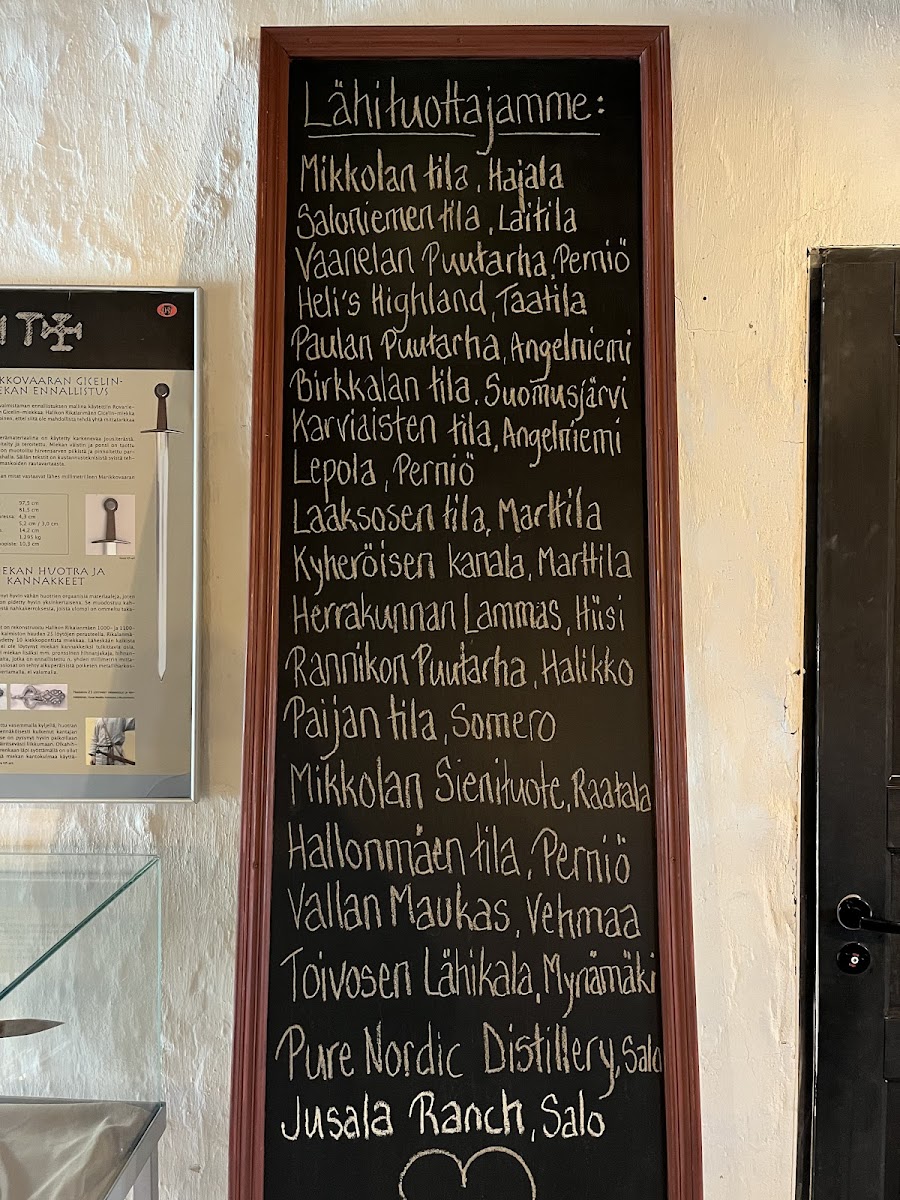 Lähituottajamme:
Mikkolan tila, Hajala
Saloniemen tila, Laitila
Vaanelan Puutarha, Perniö
Heli's Highland, Taatila
Paulan Puutarha, Angelniemi
Birkkalan tila, Suomusjärvi
Karviaisten tila, Angelniemi
Lepola, Perniö
Laaksosen tila, Marttila
Kyheröisen kanala, Marttila
Herrakunnan Lammas, Hiisi
Rannikon Puutarha, Halikko
Paijan tila, Somero
Mikkolan Sienituote, Raatala
Hallonmäen tila, Perniö
Vallan Maukas, Vehmaa
Toivosen Lähikala, Mynämäki
Pure Nordic Distillery, Salo
Jusala Ranch, Salo
KKOVAARAN GICELIN-
EKAN ENNALLISTUS
97,5 cm
81,5 cm
4,3 cm
5,2 cm / 3,0 cm
14,2 cm
1,295 kg
10,3 cm
EKAN HUOTRA JA
KANNAKKEET